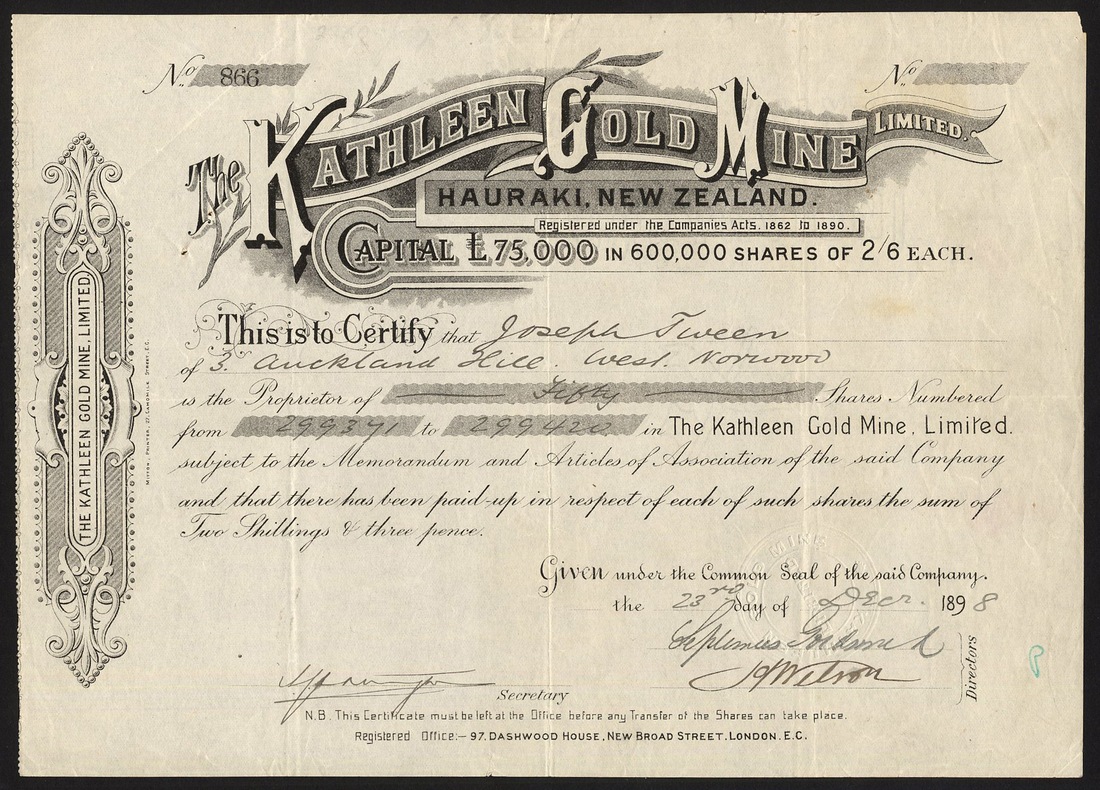 No. 866
No.
The Kathleen Gold Mine Limited.
HAURAKI, NEW ZEALAND.
Registered under the Companies Acts. 1862 to 1890.
CAPITAL £75,000 IN 600,000 SHARES OF 2/6 EACH.
This is to Certify that Joseph Tween
of 3. Auckland Hill. West. Norwood
is the Proprietor of Fifty Shares Numbered
from 299371 to 299420 in The Kathleen Gold Mine, Limited.
subject to the Memorandum and Articles of Association of the said Company
and that there has been paid-up in respect of each of such shares the sum of
Two Shillings & three pence.
Given under the Common Seal of the said Company.
the 23rd day of Decr. 1898
Septimus
J Wilson
Directors
Secretary
N.B. This Certificate must be left at the Office before any Transfer of the Shares can take place.
Registered Office:- 97, DASHWOOD HOUSE, NEW BROAD STREET, LONDON. E.C.
THE KATHLEEN GOLD MINE, LIMITED